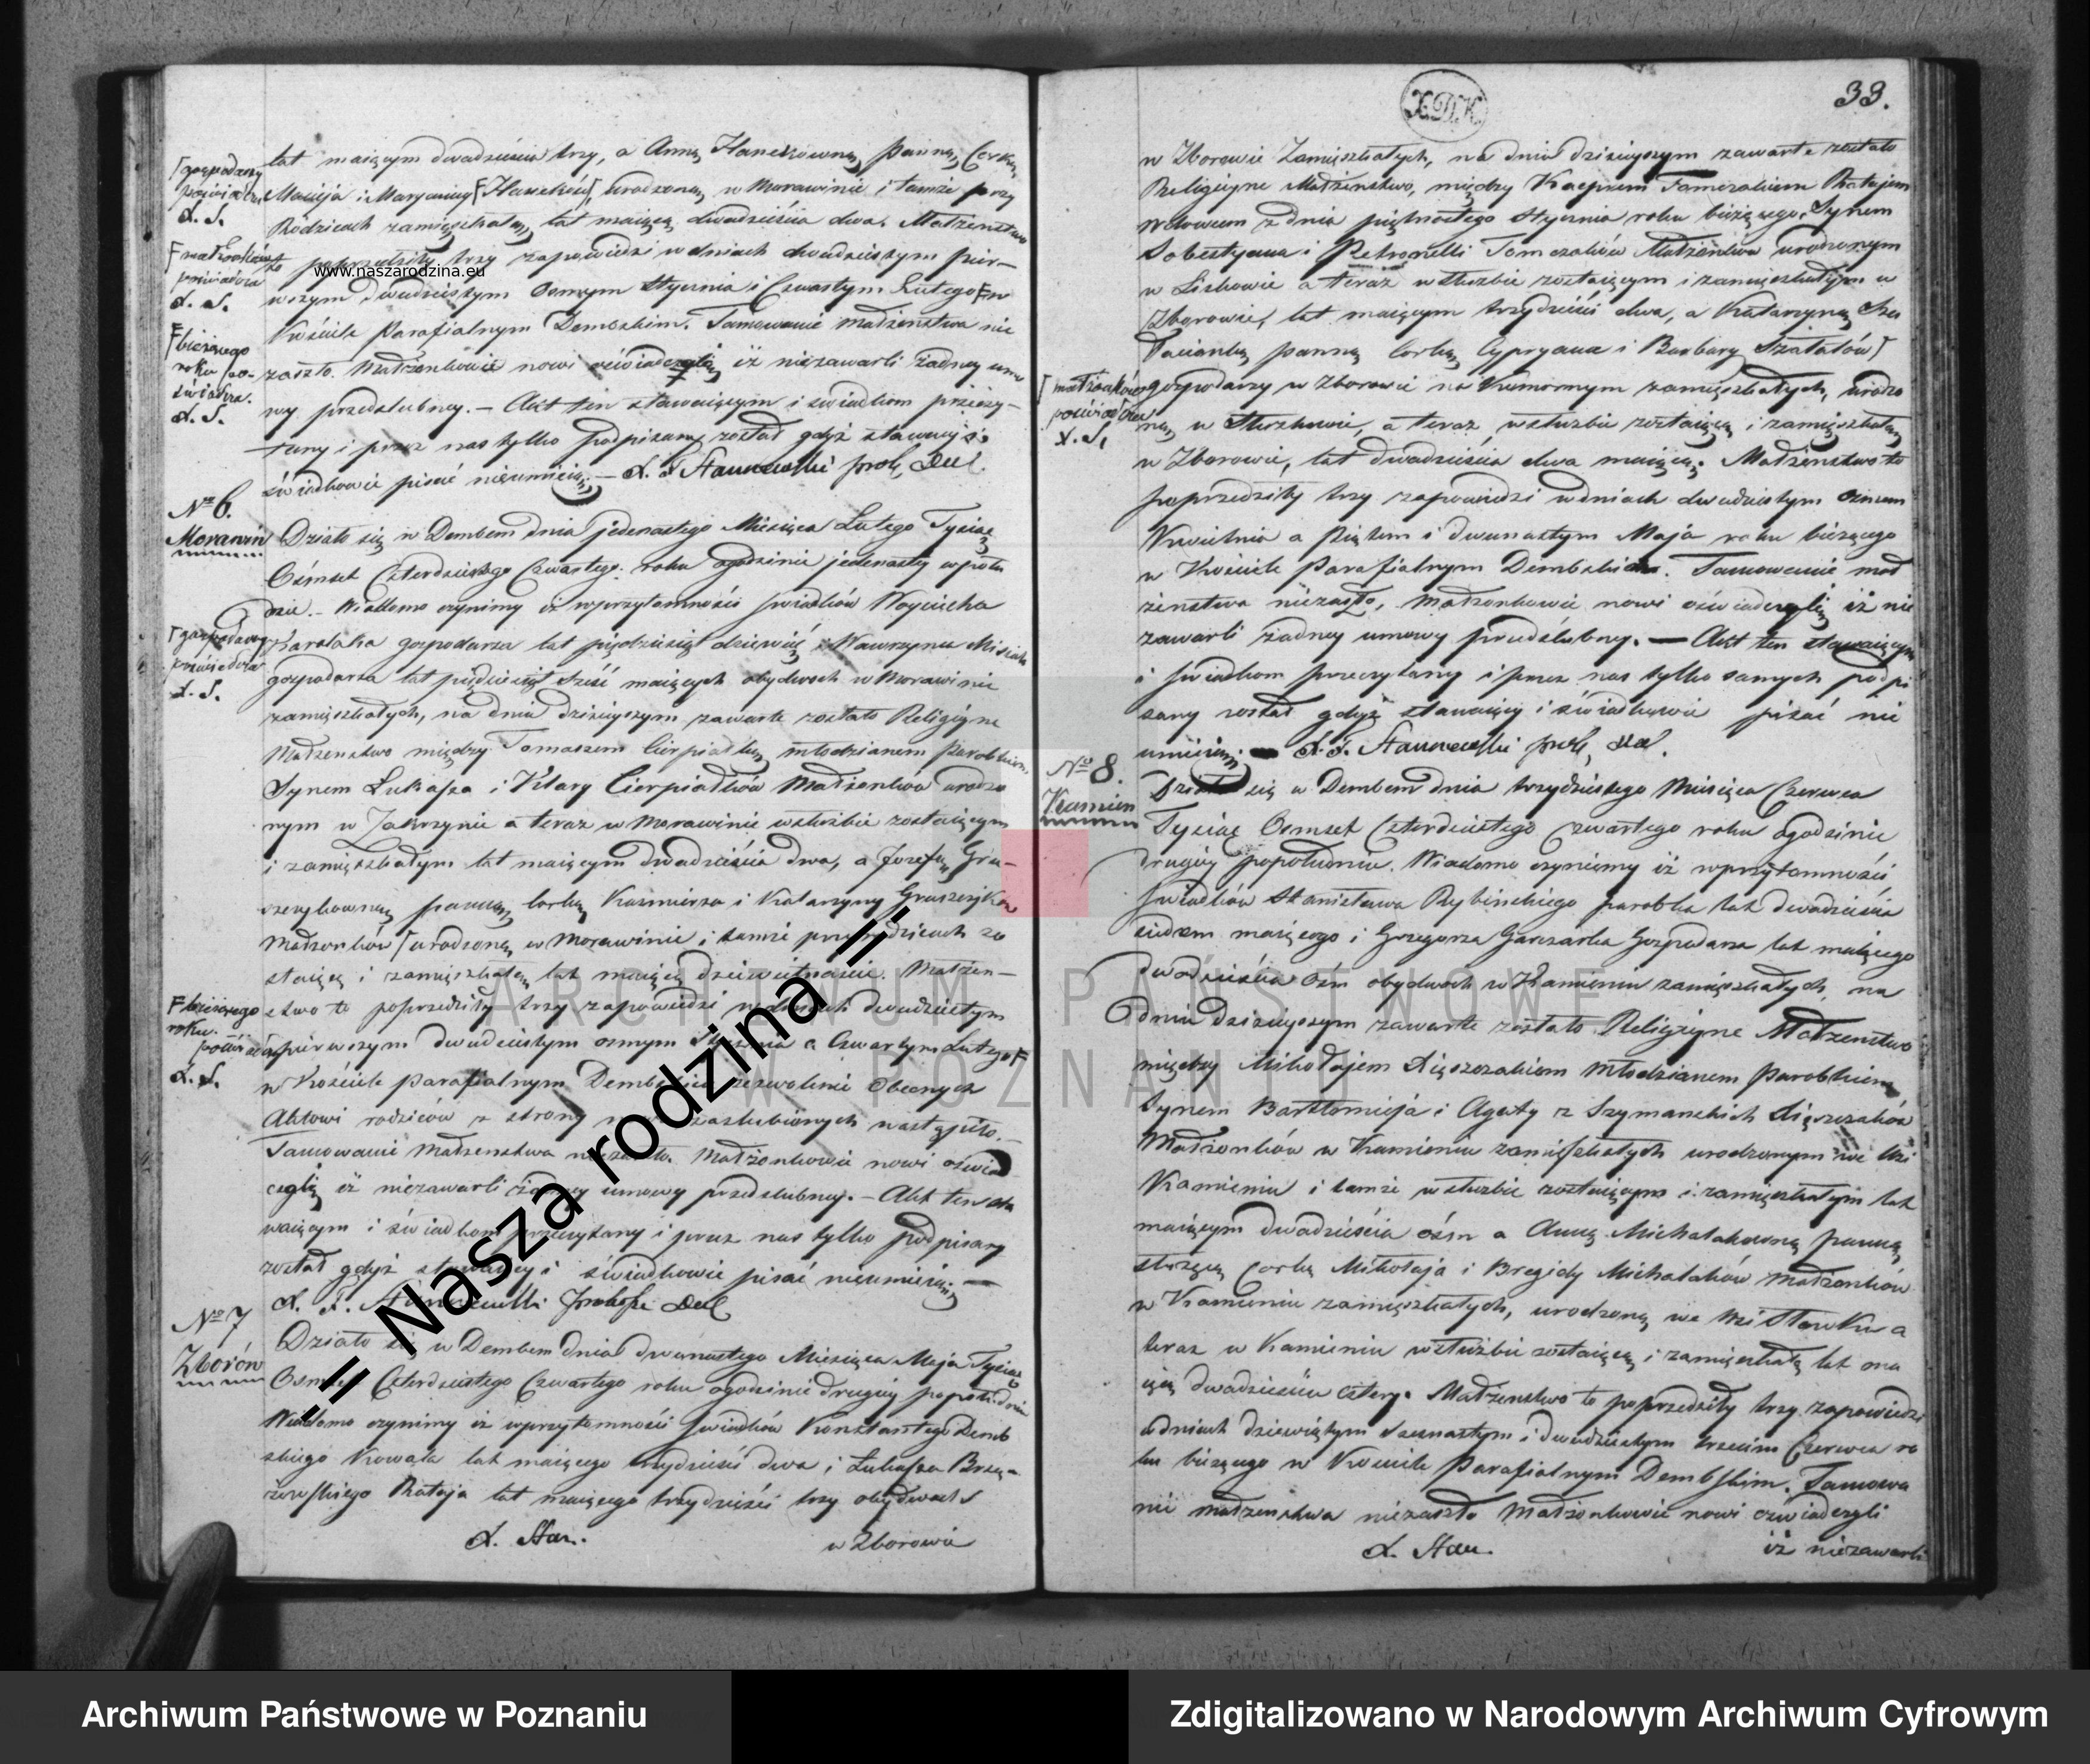 lat maiącym dwadzieścia trzy, a Anną Hanekówną panną, Corką
[gospodarzy
poświadcza
X. S.
Macieja i Maryanny [Haneków], urodzoną w Morawinie i tamże przy
Rodzicach zamięszkałą, lat maiącą dwadzieścia dwa. Małżeństwo
to poprzedziły trzy zapowiedzi w dniach dwudziestym pier-
wszym dwudziestym osmym Stycznia i Czwartym Lutego F w
Kościele Parafialnym Dembskim. Tamowanie małżeństwa nie
F bieżącego
roku po-
świadcza.
X. S.
zaszło. Małżonkowie nowi oświadczyli iż niezawarli żadney umo
wy przedślubney. — Akt ten stawaiącym i świadkom przeczy-
tany i przez nas tylko podpisany został gdyż stawaiący i
świadkowie pisać nieumieią. — X. Stanowski prob. Del.
www.naszarodzina.eu
№ 6.
Morawin
Działo się w Dembem dnia jedenastego Miesiąca Lutego Tysiąc
Ośmset Czterdziestego Czwartego roku ogodzinie jedenasty wpołu
dnie. — Wiadomo czynimy iż wprzytomności świadków Woyciecha
[gospodarzy
poświadcza
X. S.
gospodarza lat pięćdziesiąt dziewięć i Wawrzyna
gospodarza lat pięćdziesiąt sześć maiących obydwoch w Morawinie
zamięszkałych, na dniu dzisieyszym zawarte zostało Religiyne
Małżenstwo między Tomaszem Cierpiałką młodzianem parobkiem
Synem Łukasza i Klary Cierpiałków Małżonków urodzo
nym w Zakrzynie a teraz w Morawinie wsłużbie zostaiącym
i zamięszkałym lat maiącym dwadzieścia dwa, a Jozefą Gru-
szczykowną panną, Corką Kazmierza i Katarzyny Gruszczyków
Małżonków [urodzoną w Morawinie i tamże przy rodzicach zo
staiącą i zamięszkałą lat maiącą dziewietnaście. Małżen-
F bieżącego
roku.
poświadcza
X. S.
stwo to poprzedziły trzy zapowiedzi w dniach dwudziestym
pierwszym dwudziestym osmym Stycznia a Czwartym Lutego F
w Kościele parafialnym Dembskim zezwolenie obecnych
Aktowi rodziców z strony nowozaslubionych nastąpiło. —
Tamowanie Małzenstwa niezaszło. Małżonkowie nowi oświad
czyli iż niezawarli żadney umowy przedslubney. — Akt ten sta
waiącym i świadkom przeczytany i przez nas tylko podpisany
został gdyż stawaiący i świadkowie pisać nieumieią. —
X. F. Stanowski Prob. Del
№ 7
Zborów
Działo się w Dembem dnia dwunastego Miesiąca Maja Tysiąc
Osmset Czterdziestego Czwartego roku ogodzinie drugiey popołudniu
Wiadomo czynimy iż wprzytomności świadków Konstantego Demb
skiego Kowala lat maiącego trzydzieści dwa i Łukasza
Rataja lat maiącego trzydzieści trzy obydwoch
X. Stan.
w Zborowie
X.D.K.
33.
w Zborowie Zamięszkałych, na dniu dzisieyszym zawarte zostało
Religiyne Małżenstwo, między Kacprem Tomczakiem Ratajem
wdowcem z dnia piętnastego Stycznia roku bieżącego, Synem
Sobestyana i Petronelli Tomczaków Małżonków urodzonym
w Liskowie a teraz wsłużbie zostaiącym i zamięszkałym w
Zborowie, lat maiącym trzydzieści dwa, a Katarzyną Sza
panną Corką Cypryana i Barbary Szałatów]
[małżonków
poświadcza
X. S.
gospodarzy w Zborowie na Komornym zamięszkałych, urodzo
ną w a teraz wsłużbie zostaiącą i zamięszkałą
w Zborowie, lat dwadzieścia dwa maiącą. Małżenstwo to
poprzedziły trzy zapowiedzi wdniach dwudziestym osmem
Kwietnia a Piątem i dwunastym Maja roku bieżącego
w Kościele Parafialnym Dembskim. Tamowanie mał
żenstwa niezaszło, Małżonkowie nowi oświadczyli iż nie
zawarli żadney umowy przedślubny. — Akt ten stawaiącym
i świadkom przeczytany i przez nas tylko samych podpi
sany został gdyż stawaiący i świadkowie pisać nie
umieią. — X. F. Stanowski prob. Del.
№ 8.
Kamien
Działo się w Dembem dnia trzydziestego Miesiąca Czerwca
Tysiąc Osmset Czterdziestego Czwartego roku ogodzinie
drugiey popołudniu. Wiadomo czyniemy iż wprzytomności
świadków Stanisława Rybinskiego parobka lat dwadzieścia
siedem maiącego i Grzegorza Garczarka Gospodarza lat maiącego
dwadzieścia ośm obydwoch w Kamieniu zamięszkałych, na
dniu dzisieyszym zawarte zostało Religiyne Małżenstwo
między Mikołajem Dięszczakiem Młodzianem Parobkiem
Synem Bartłomieja i Agaty z Szymanskich Dięszczaków
Małżonków w Kamieniu zamięszkałych urodzonym we Wsi
Kamieniu i tamże wsłużbie zostaiącym i zamięszkałym lat
maiącym dwadzieścia ośm a Anną Michalakowną panną
Corką Mikołaja i Bregidy Michalaków Małżonków
w Kamieniu zamięszkałych, urodzoną we Wsi a
teraz w Kamieniu wsłużbie zostaiącą i zamięszkałą lat ma
iącą dwadzieścia cztery. Małżenstwo to poprzedziły trzy zapowiedzi
w dniach dziewiątym szesnastym i dwudziestym trzecim Czerwca ro
ku bieżącego w Kościele Parafialnym Dembskim. Tamowa
nie małżenstwa niezaszło Małżonkowie nowi oświadczyli
X. Stan.
iż niezawarli
-= Nasza rodzina =-
ARCHIWUM PAŃSTWOWE
W POZNANIU
Archiwum Państwowe w Poznaniu
Zdigitalizowano w Narodowym Archiwum Cyfrowym